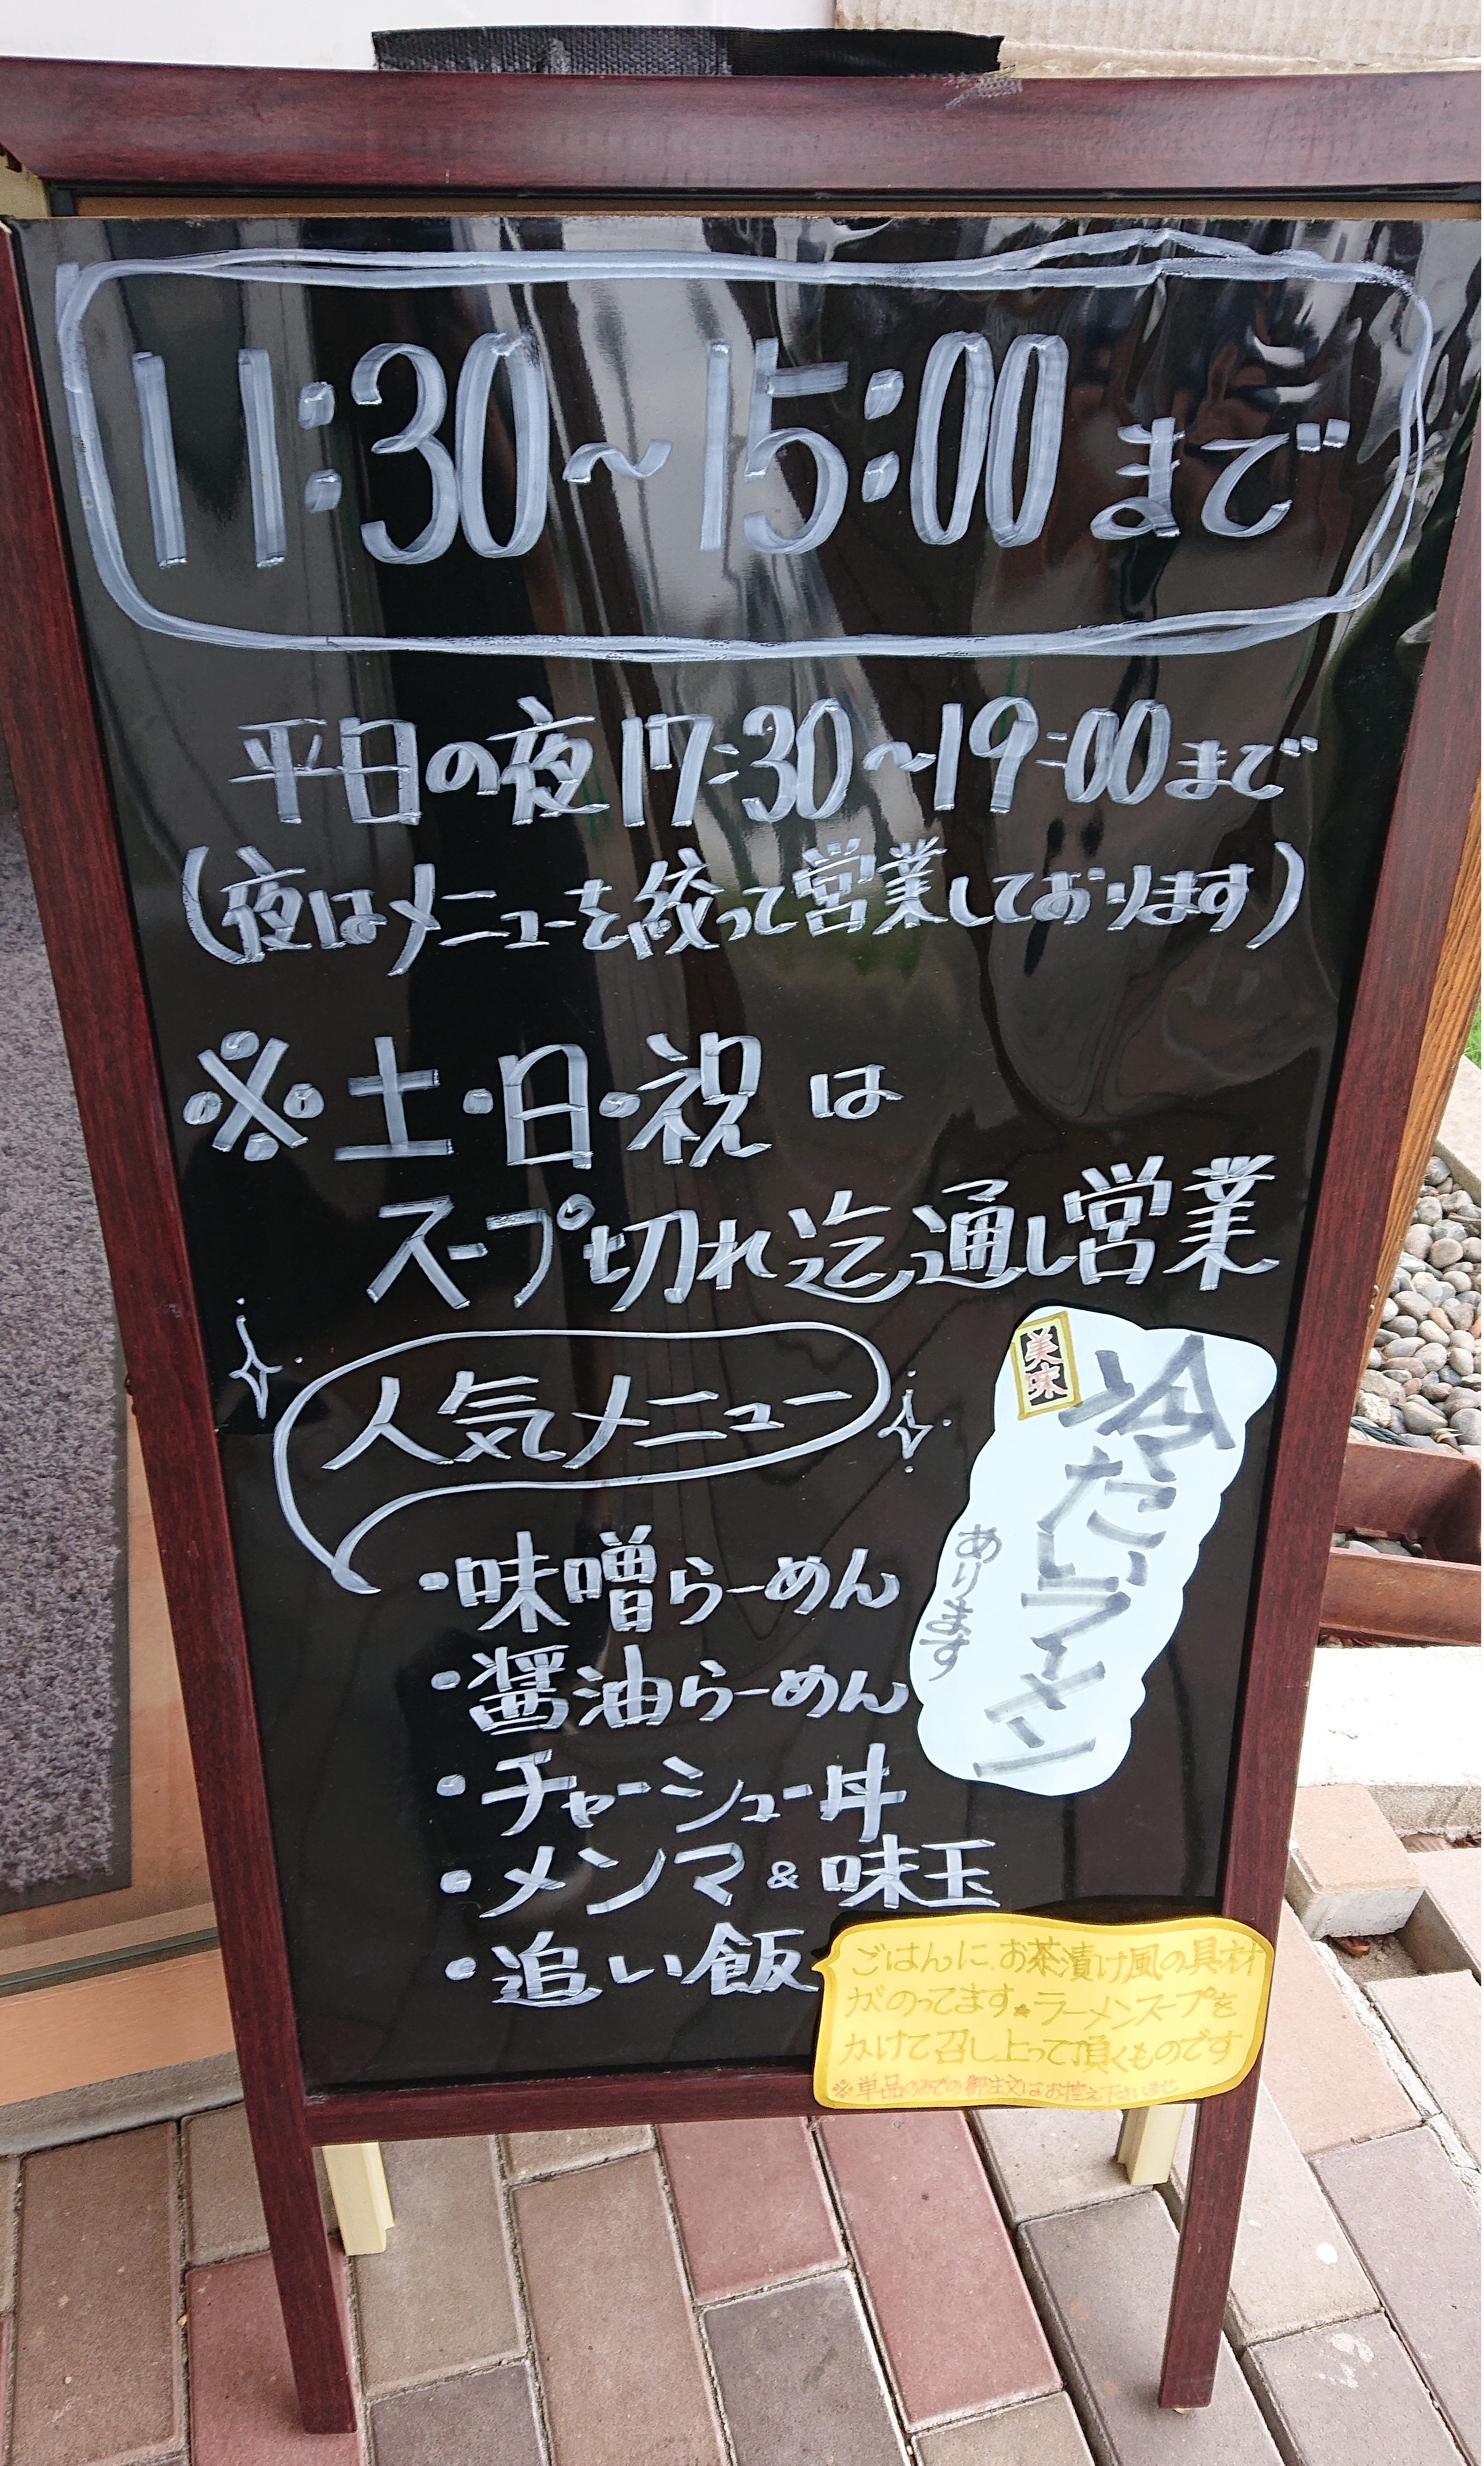 11:30～15:00まで
平日の夜17:30～19:00まで
(夜はメニューを絞って営業しております)
※土・日・祝は
スープ切れ迄通し営業
人気メニュー
・味噌らーめん
・醤油らーめん
・チャーシュー丼
・メンマ&味玉
・追い飯
美味
冷たいラーメン
あります
ごはんにお茶漬け風の具材
がのってます。ラーメンスープを
かけて召し上って頂くものです
※単品のみでの御注文はお控え下さいませ